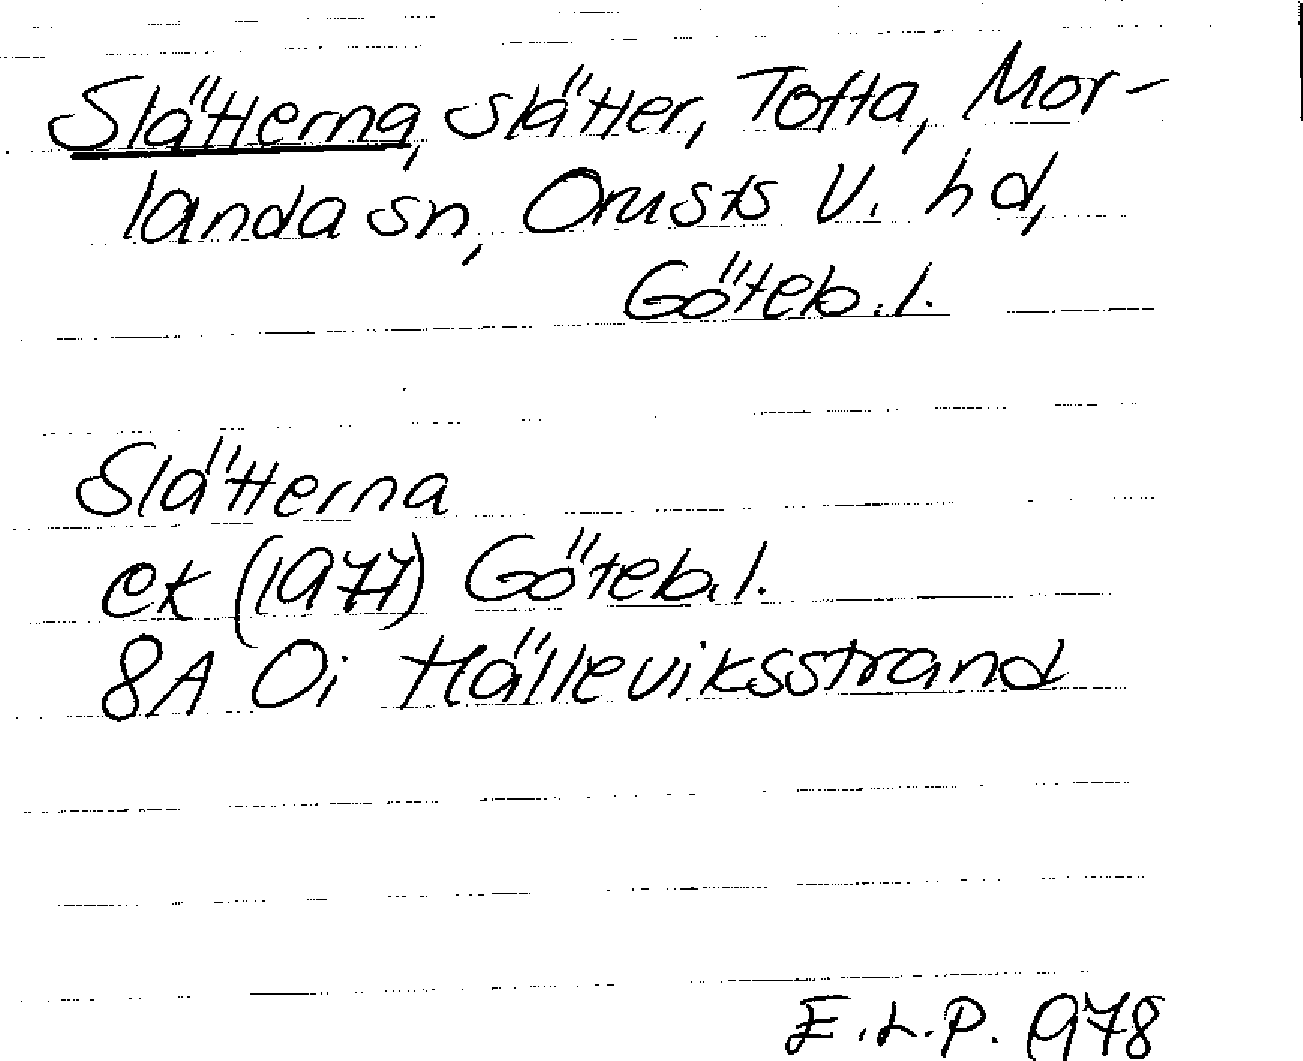 Slätterna, slätter, Tofta, Mor-
landa sn, Orusts V. hd,
Göteb. l.
Slätterna
ek (1977) Göteb. l.
8A 0i Hälleviksstrand
E.L.P. 1978